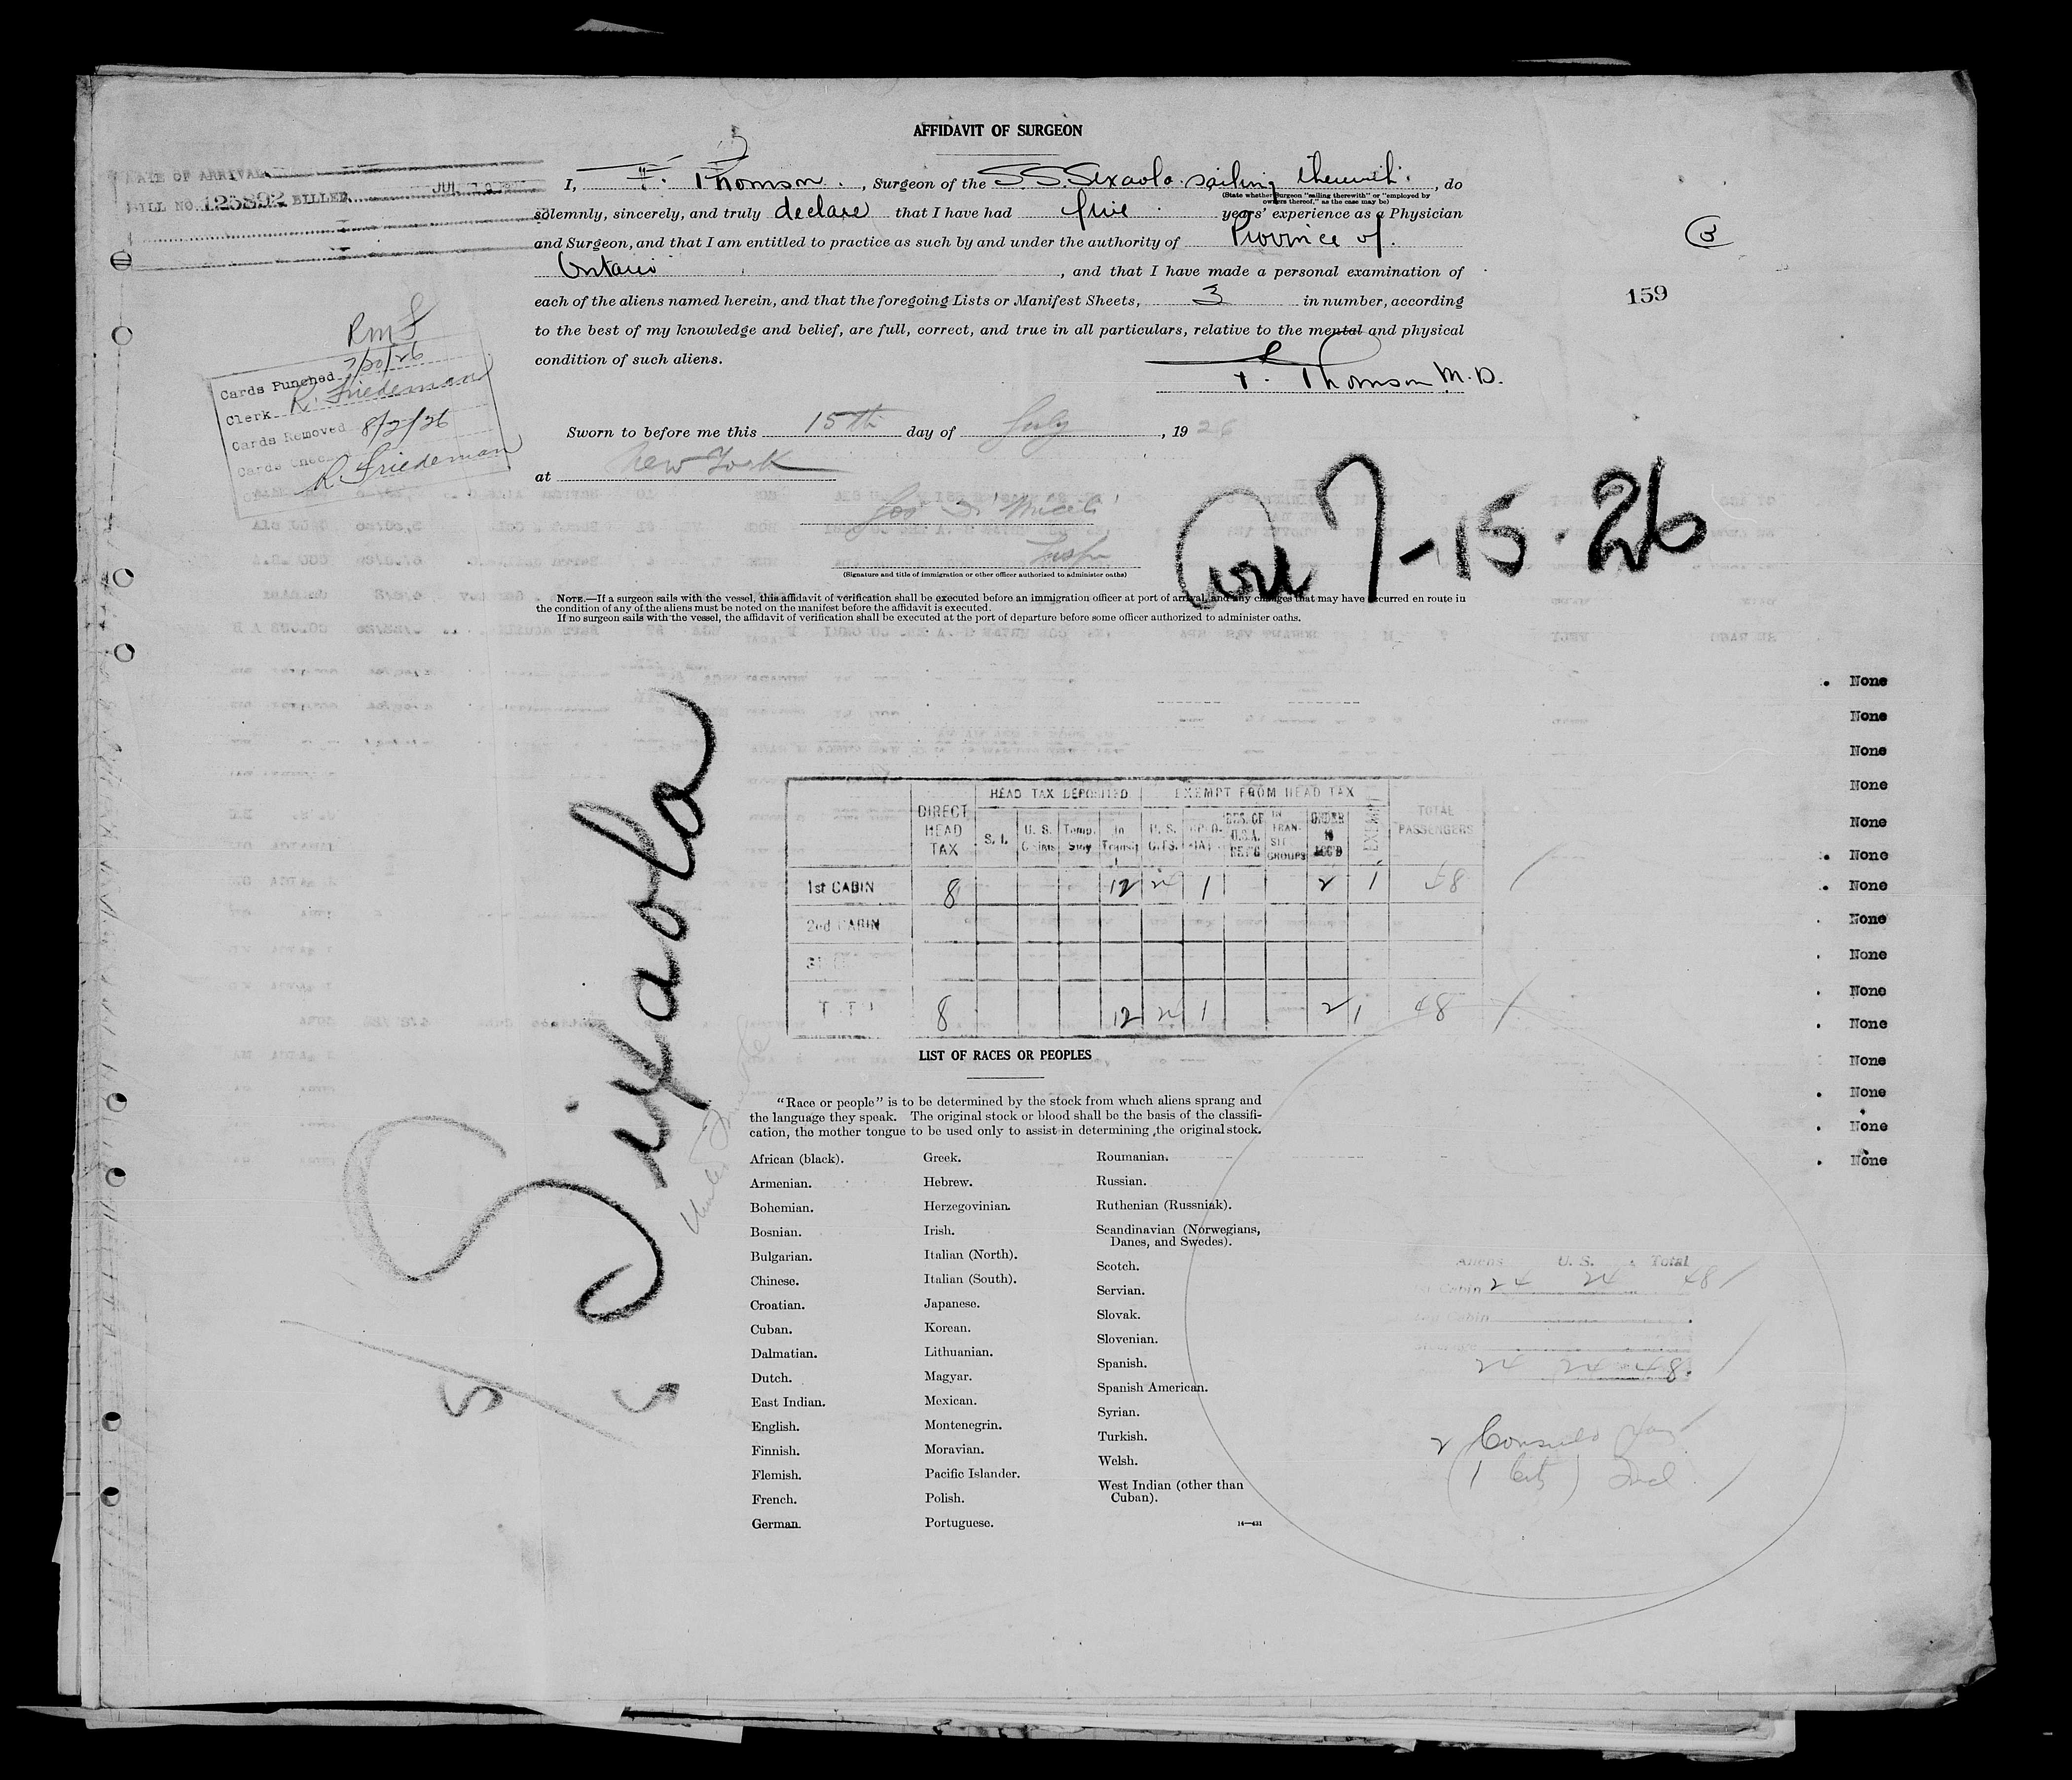 AFFIDAVIT OF SURGEON
DATE OF ARRIVAL
BILL NO. 125892 BILLED JUL
I, F. Thomson. , Surgeon of the S.S. Sixaola sailing therewith. , do
(State whether Surgeon "sailing therewith" or "employed by
owners thereof," as the case may be)
solemnly, sincerely, and truly declare that I have had five years' experience as a Physician
and Surgeon, and that I am entitled to practice as such by and under the authority of Province of
Ontario , and that I have made a personal examination of
each of the aliens named herein, and that the foregoing Lists or Manifest Sheets, 3 in number, according
to the best of my knowledge and belief, are full, correct, and true in all particulars, relative to the mental and physical
condition of such aliens.
F. Thomson M.D.
3
159
RMF
Cards Punched 7/30/26
Clerk R. Friedeman
Cards Removed 8/2/26
R. Friedeman
Sworn to before me this 15th day of July , 1926
at New York
Insp
(Signature and title of immigration or other officer authorized to administer oaths)
7-15-26
NOTE.—If a surgeon sails with the vessel, this affidavit of verification shall be executed before an immigration officer at port of arrival, and any changes that may have occurred en route in
the condition of any of the aliens must be noted on the manifest before the affidavit is executed.
If no surgeon sails with the vessel, the affidavit of verification shall be executed at the port of departure before some officer authorized to administer oaths.
Sixaola
None
None
None
None
None
None
None
None
None
None
None
None
None
None
None
HEAD TAX DEPOSITED EXEMPT FROM HEAD TAX
DIRECT HEAD TAX S. I. U. S. Temp. Stay In Transit U. S. CITS. RES. OF U.S.A. RET'G IN TRANSIT GROUPS UNDER 16 ACC'D EXEMPT TOTAL PASSENGERS
1st CABIN 8 12 24 1 2 1 48
2nd CABIN
8 12 24 1 2 1 48
LIST OF RACES OR PEOPLES
"Race or people" is to be determined by the stock from which aliens sprang and
the language they speak. The original stock or blood shall be the basis of the classifi-
cation, the mother tongue to be used only to assist in determining the original stock.
African (black). Greek. Roumanian.
Armenian. Hebrew. Russian.
Bohemian. Herzegovinian. Ruthenian (Russniak).
Bosnian. Irish. Scandinavian (Norwegians,
Danes, and Swedes).
Bulgarian. Italian (North). Scotch.
Chinese. Italian (South). Servian.
Croatian. Japanese. Slovak.
Cuban. Korean. Slovenian.
Dalmatian. Lithuanian. Spanish.
Dutch. Magyar. Spanish American.
East Indian. Mexican. Syrian.
English. Montenegrin. Turkish.
Finnish. Moravian. Welsh.
Flemish. Pacific Islander. West Indian (other than
Cuban).
French. Polish.
German. Portuguese.
14—431
Aliens U. S. Total
Cabin 24 24 48
Cabin
24 24 48